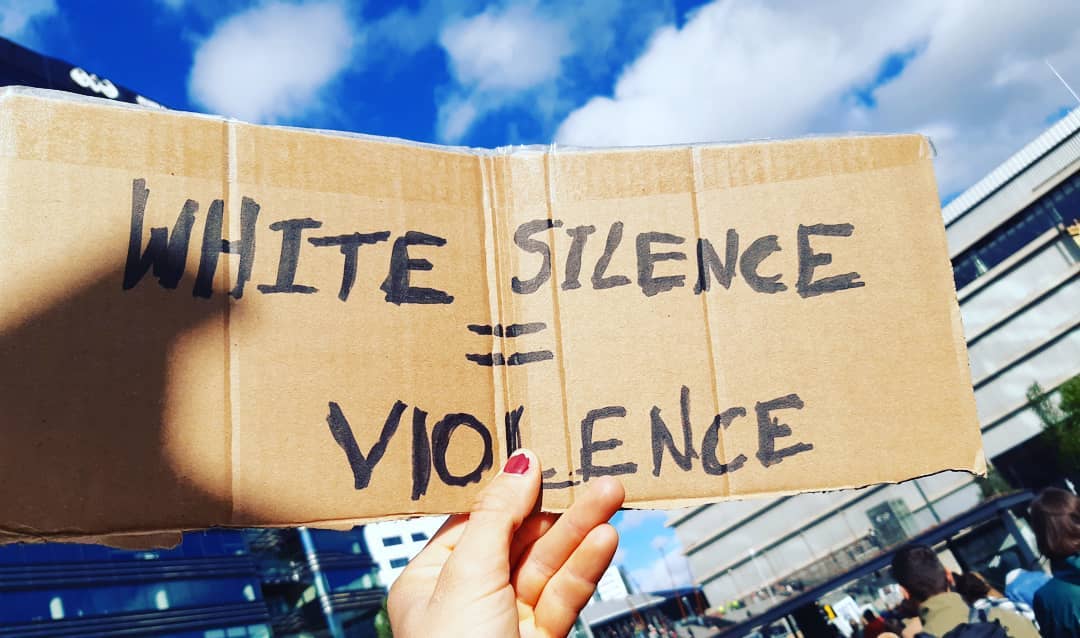 WHITE SILENCE
=
VIOLENCE